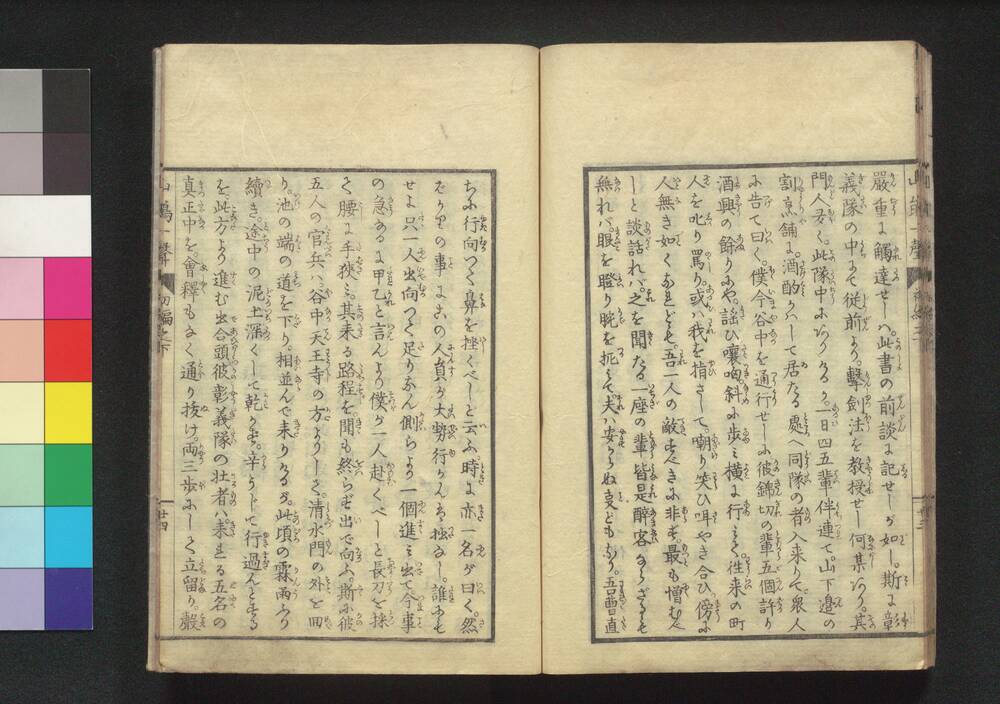 嚴重に觸達せしハ此書の前談に記せしが如し。斯に章
義隊の中にて従前より、擊剣法を教授せし何某あり。其
門人夛く。此隊中にありける。一日四五輩伴連て。山下邉の
割烹舗に。酒酌かハして居たる處へ同隊の者入来りて。衆人
に告て曰く。僕今谷中を通行せしに彼錦切の輩五個許り
酒興の餘りにや。謡ひ嚷吻斜に歩ミ横に行ミく。徃来の町
人を叱り罵り。或ハ我を指さして。嘲り笑ひ咡やき合ひ傍に
人無き如くなれども。吾一人の敵すべきに非ず。最も憎むべ
しと談話れバ。之を聞たる一座の輩皆是醉客ならざるも
無れバ。眼を瞪り腕を扼して。夫ハ安からぬ夏どもなり。吾曹直
ちに行向つて鼻を挫くべしと云ふ時に亦一名が曰く。然
をかりの事に
の人真が大勢行かんも拙なし。誰にも
せよ只一人出向つて足りなん側らより一個進ミ出て今事
の急なるに甲乙と言んより僕が一人赴くべしと長刀を採
て腰に手挾ミ。其来る路程を。聞も終らず出で向ふ。斯に彼
五人の官兵ハ。谷中天王寺の方よりして。清水門の外を回
り。池の端の道を下り。相並んで来りける。此頃の霖雨ふり
續き。途中の泥土深くして乾かず。辛うじて行過んとする
を此方より進む出合頭彼彰義隊の壮者ハ。来れる五名の
真正中を。會釋もなく通り抜け。両三歩にして立留り。聲
山鵑一聲
初編之下
廿四